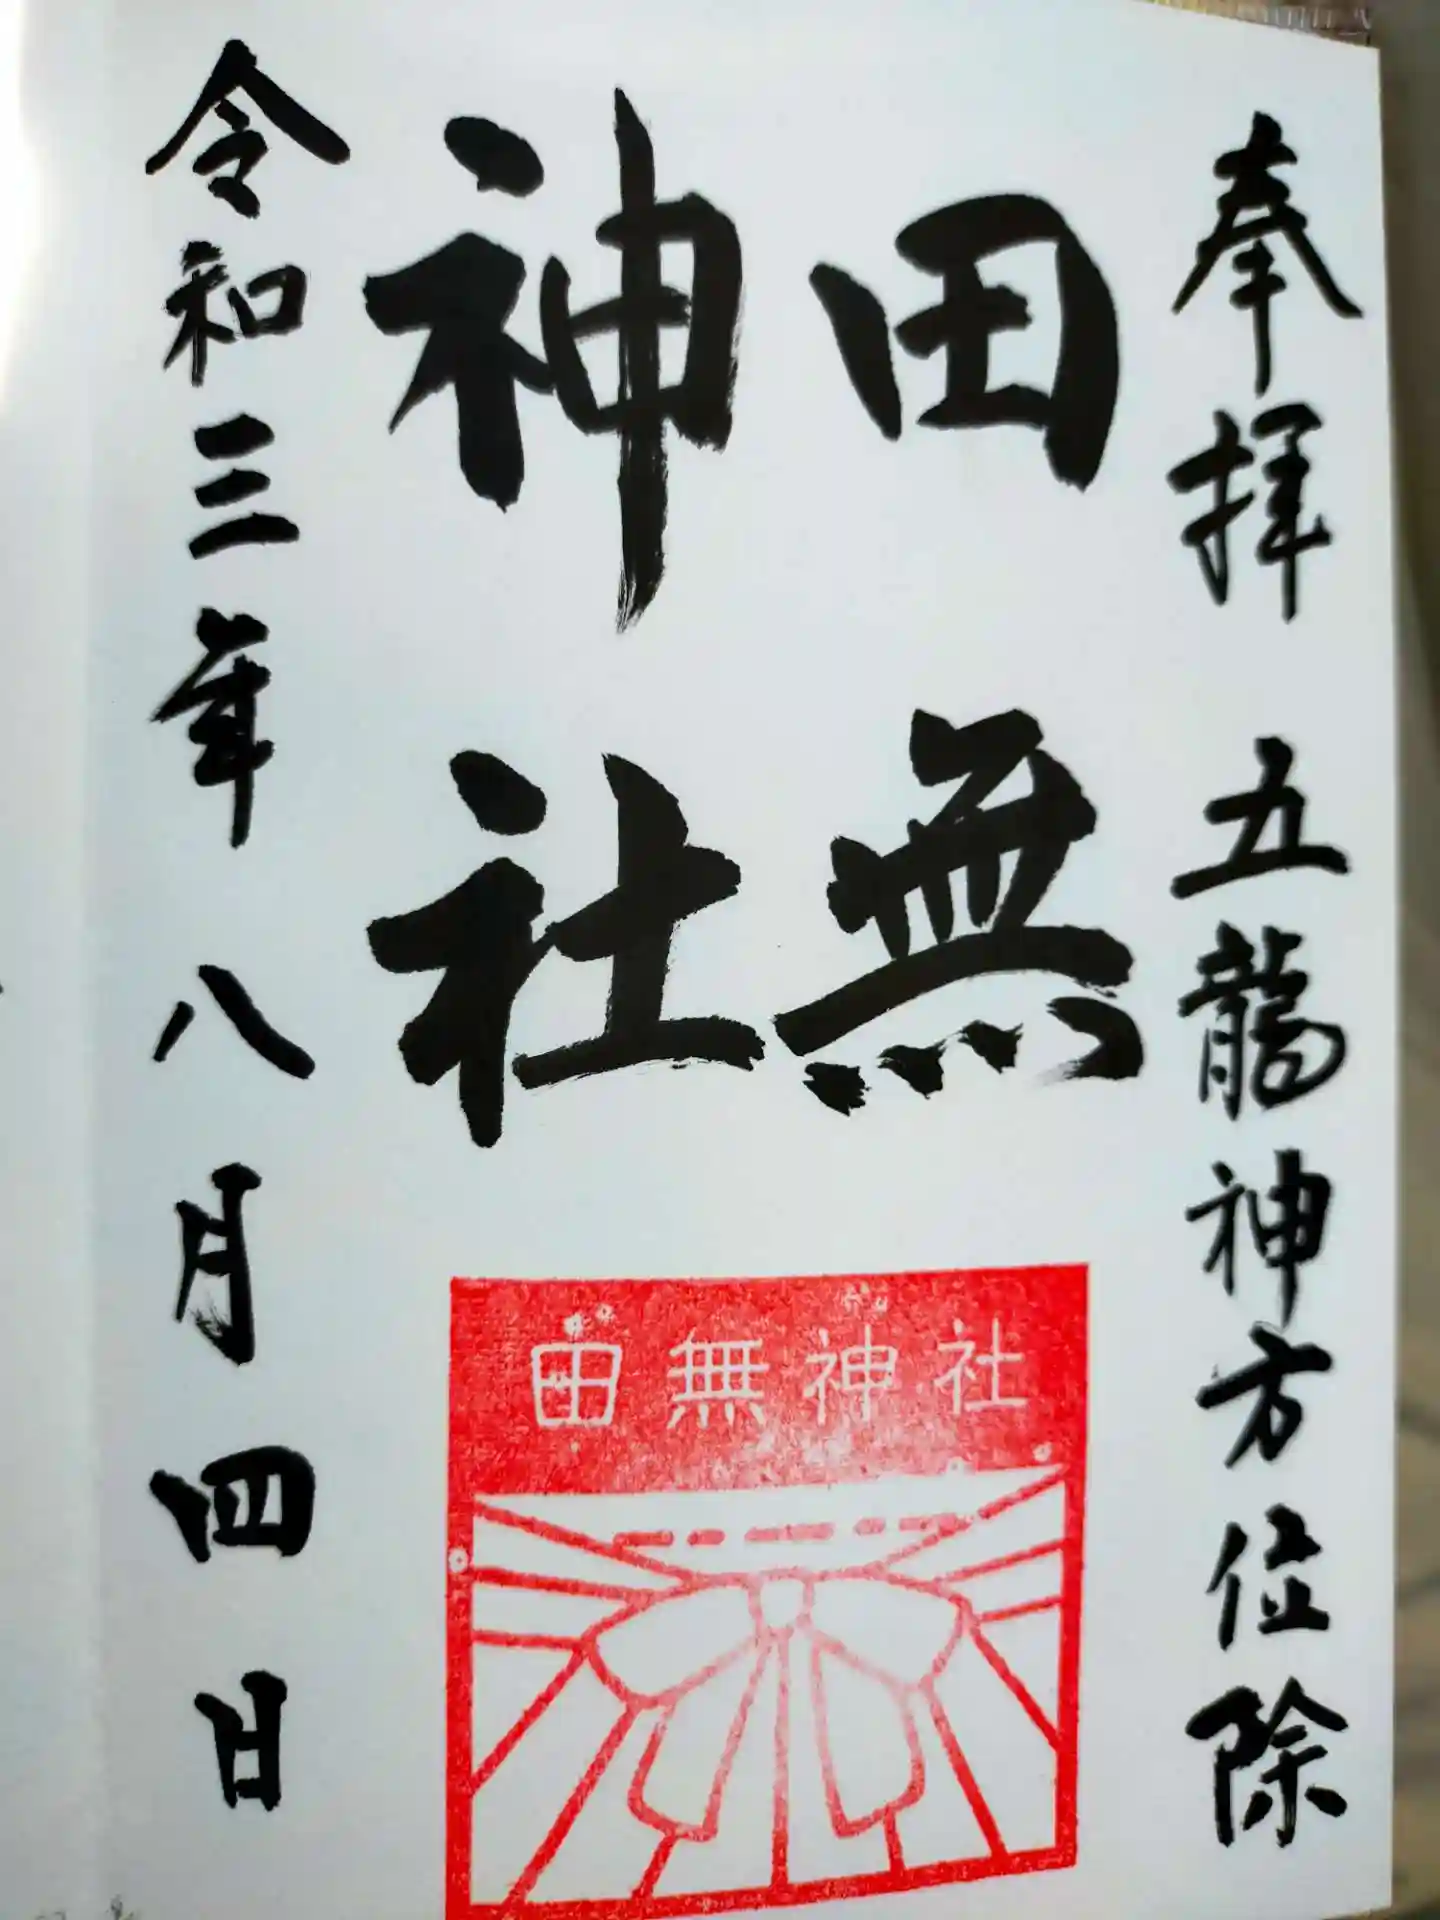 奉拝 五龍神方位除
田無
神社
令和三年八月四日
田無神社